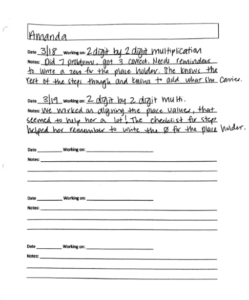 Amanda
Date 3/18 Working on: 2 digit by 2 digit multiplication
Notes: Did 7 problems, got 3 correct. Needs reminders
to write a zero for the place holder. She knows the
rest of the steps though and knows to add what she carries.
Date 3/19 Working on: 2 digit by 2 digit mult.
Notes: We worked on aligning the place values, that
seemed to help her a lot! The checklist for steps
helped her remember to write the 0 for the place holder.
Date Working on:
Notes:
Date Working on:
Notes:
Date Working on:
Notes: